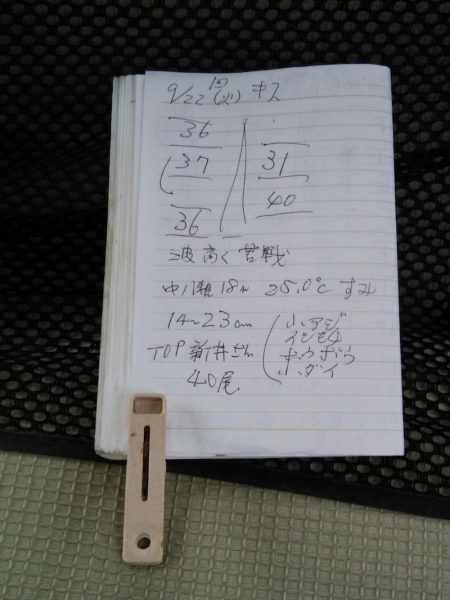 9/22 (火) キス
36
37 31
36 40
波高く苦戦
中ノ瀬 18m 25.0℃ すみ
14~23cm 小アジ
イシモチ
TOP 新井さん ホウボウ
40尾 小ダイ